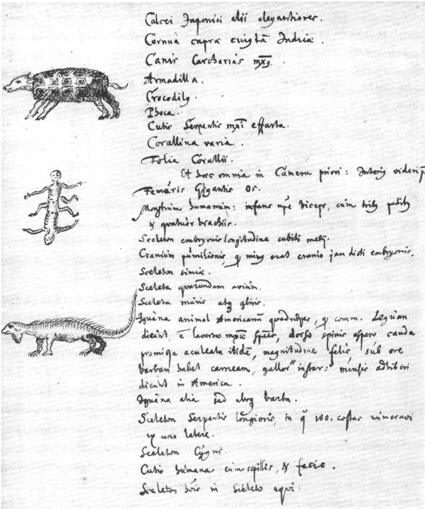 Calcei Japonici alii elegantiores.
Cornua capræ cuiusdã Indicæ.
Canis Carcharias
Armadilla.
Crocodilus.
Phoca.
Cutis Serpentis effarta.
Corallina varia.
Folia Corallii.
Et hæc omnia in Camera priori: Interius
Femoris Gigantis Os.
Monstrum humanum: infans biceps, cum tribus pedibus
et quatuor brachiis.
Sceleton embryonis longitudine cubiti
Cranium pumilionis, minus erat cranio jam dicti embryonis.
Sceleton simiæ.
Sceleta quarundam avium.
Sceleta muris atq gliris.
Iguana animal Americanum quadrupes, Leguan
dicunt, lacertæ dorso spinis aspero cauda
aculeata itidẽ, magnitudine felis, sub ore
barbam habet carneam, gallor̃ instar: mensis
dicunt in America.
Iguana alia sed absq barba.
Sceleton Serpentis longioris, in q 100. costas numeravi
ex uno latere.
Sceleton Cygni.
Cutis humana cum capillis, et facie.
Sceleton equi.